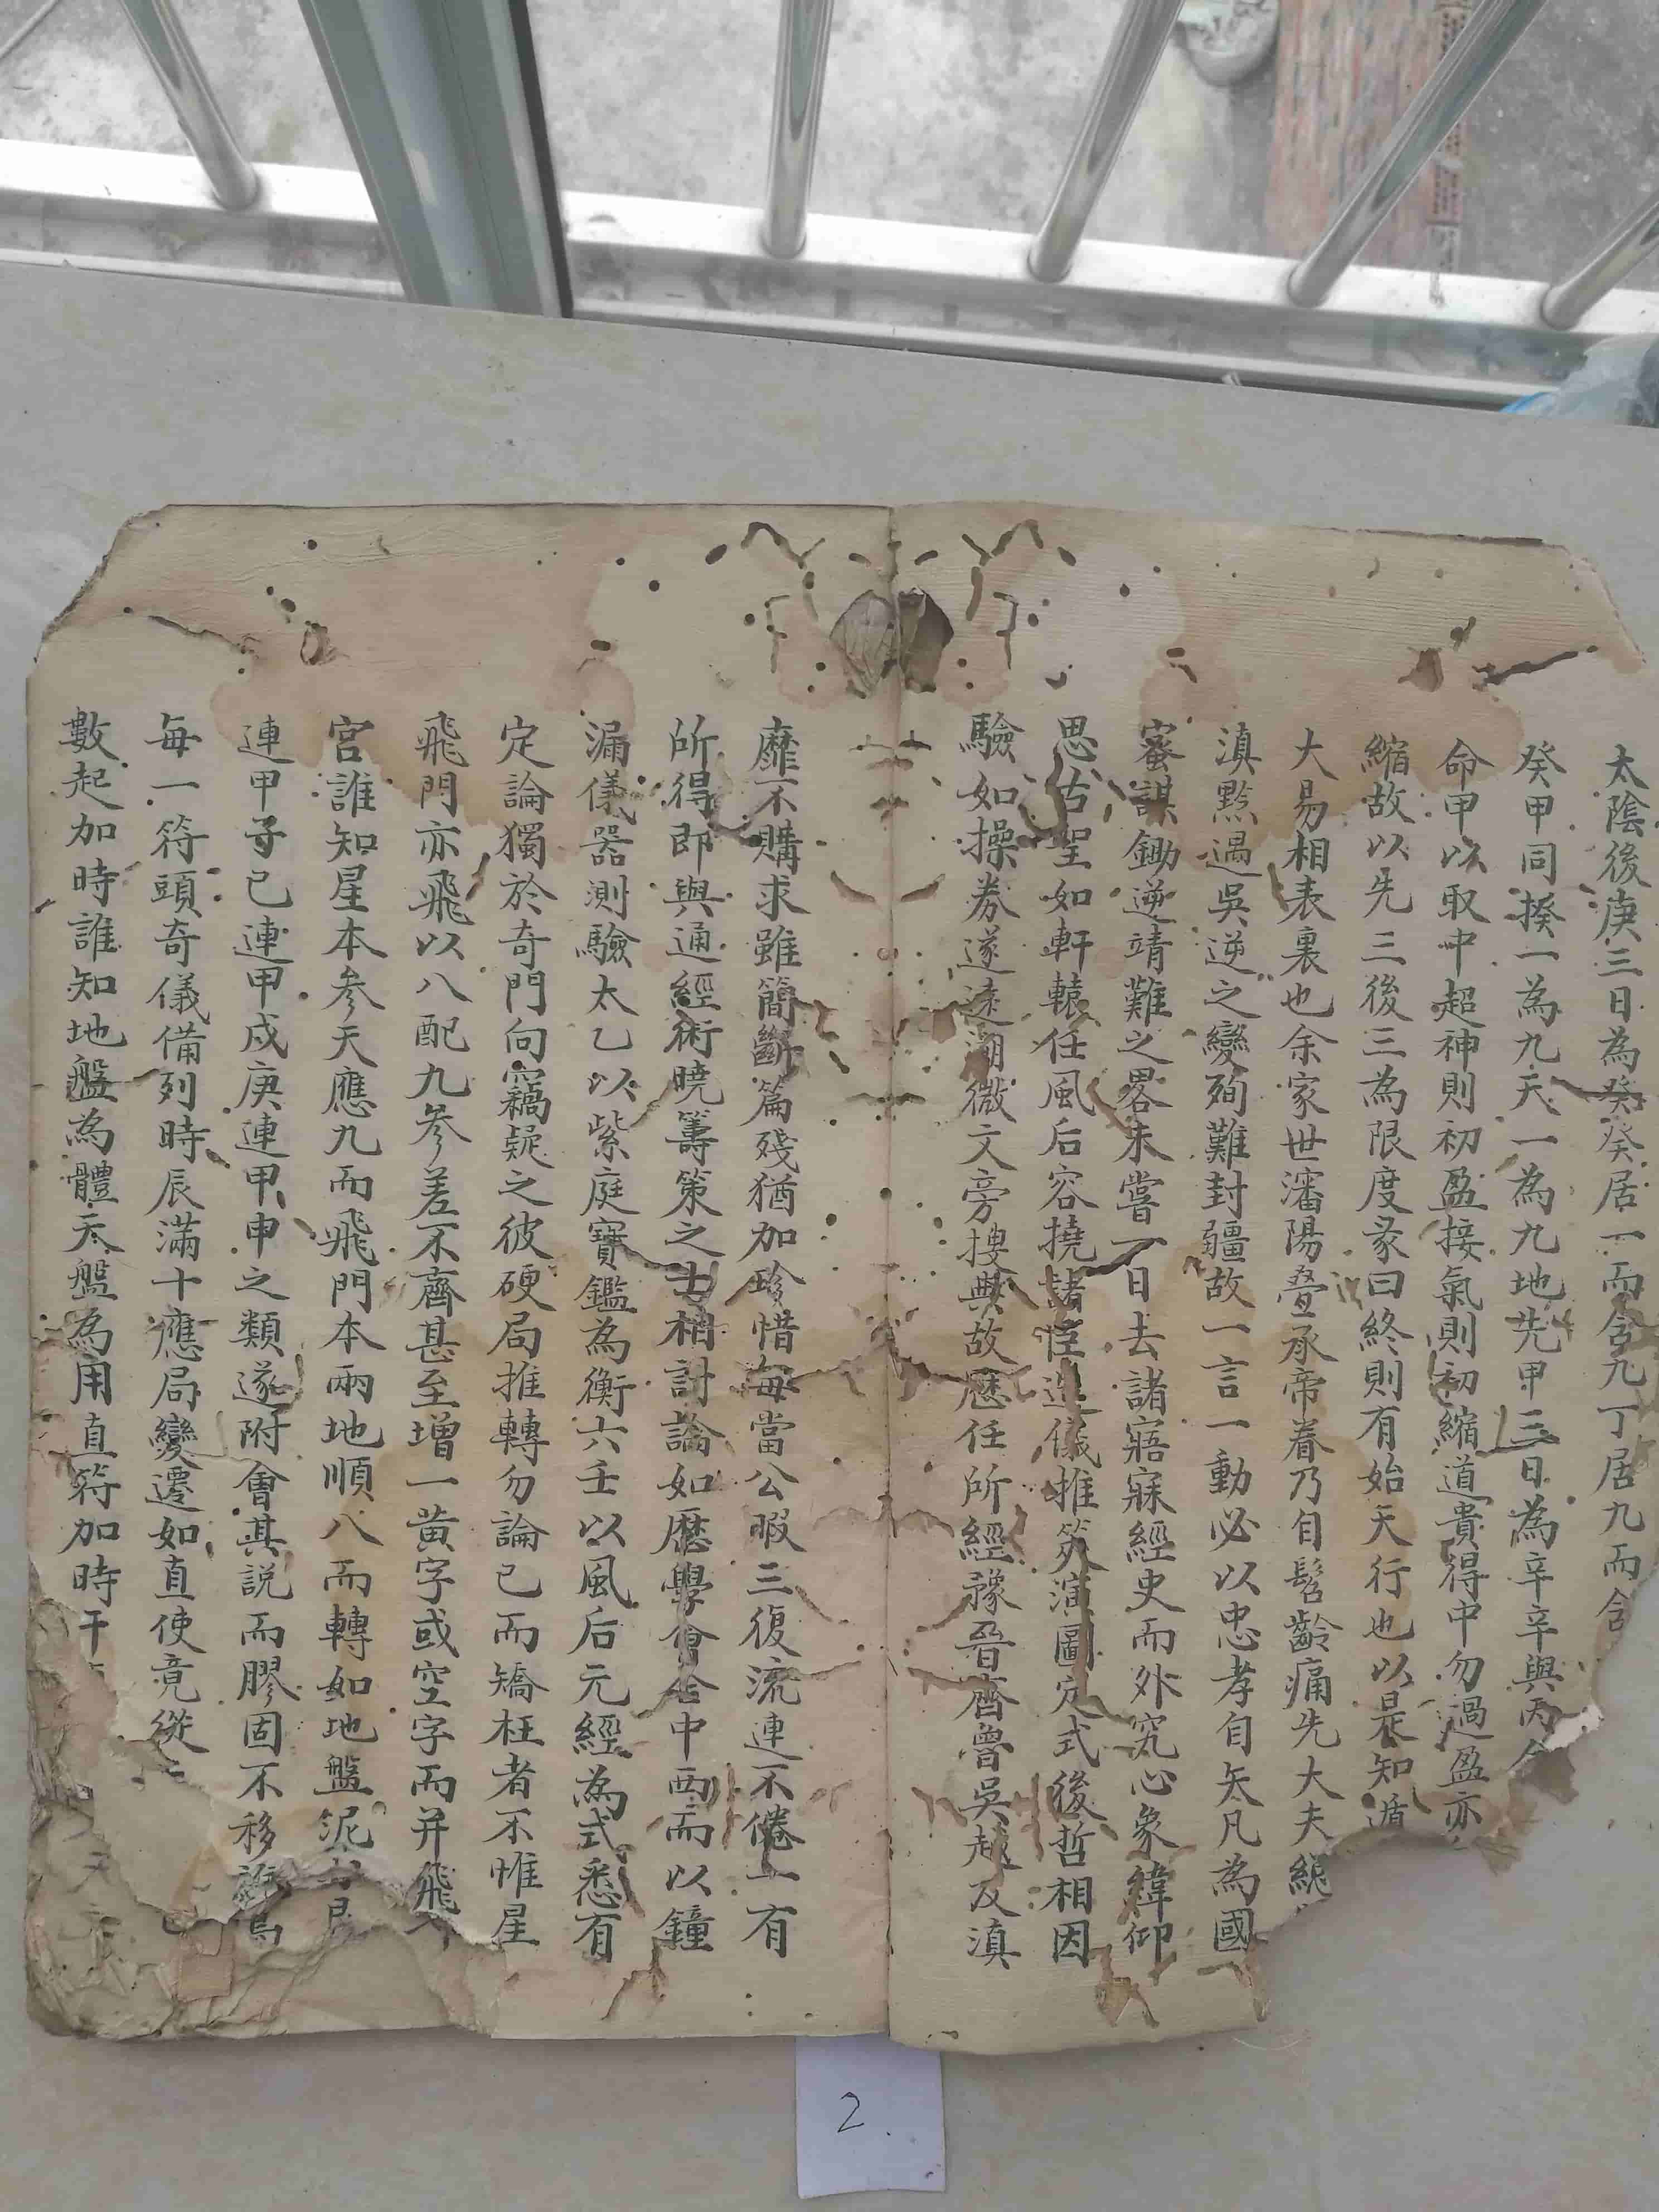 太陰後庚三日為癸癸居一而含九丁居九而含
癸甲同揆一為九天一為九地先甲三日為辛辛與丙合
命甲以取中超神則初盈接氣則初縮道貴得中勿過盈亦
縮故以先三後三為限度彖曰終則有始天行也以是知遁
大易相表裏也余家世瀋陽叠承帝眷乃自髫齡痛先大夫
滇黔遇吳逆之變殉難封疆故一言一動必以忠孝自矢凡為國
蜜謀鋤逆靖難之畧未嘗一日去諸寤寐經史而外究心象緯仰
思古聖如軒轅任風后容撓諸臣造儀推筴演圖定式後哲相因
驗如操券遂遠溯微文旁摟典故歷任所經豫晉齊魯吳越及滇
靡不購求雖簡斷篇殘猶加珍惜每當公暇三復流連不倦一有
所得即與通經術曉籌策之士相討論如歷學會合中西而以鐘
漏儀器測驗太乙以紫庭寶鑑為衡六壬以風后元經為式悉有
定論獨於奇門向竊疑之彼硬局推轉勿論已而矯枉者不惟星
飛門亦飛以八配九參差不齊甚至增一黃字或空字而并飛
宮誰知星本參天應九而飛門本兩地順八而轉如地盤泥
連甲子己連甲戌庚連甲申之類遂附會其説而膠固不移
每一符頭奇儀備列時辰滿十應局變遷如直使竟從
數起加時誰知地盤為體天盤為用直符加時干
2.